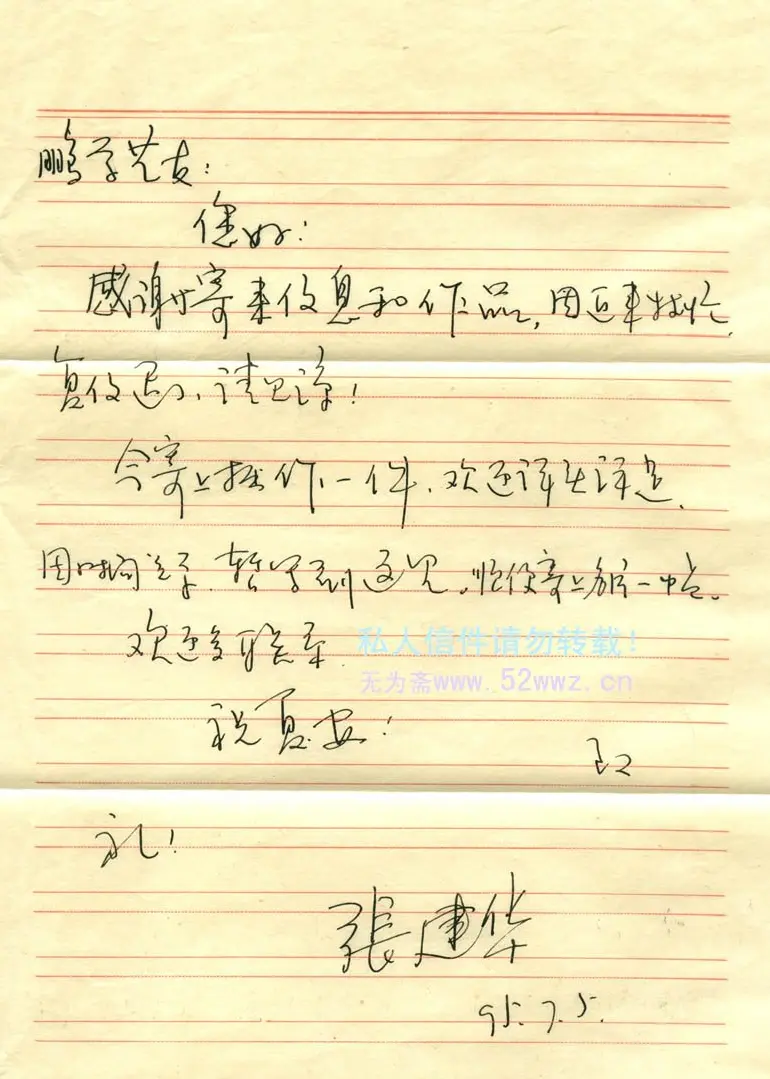 鹏学艺友：
您好！
感谢寄来信息和作品，因近来较忙，
复信迟了，请见谅！
今寄上拙作一件，欢迎
因时间关系，暂写到这里。顺便寄上名片一帖。
欢迎多联系
私人信件请勿转载！
无为斋www.52wwz.cn
祝夏安！
致
礼！
張建华
95.7.5.